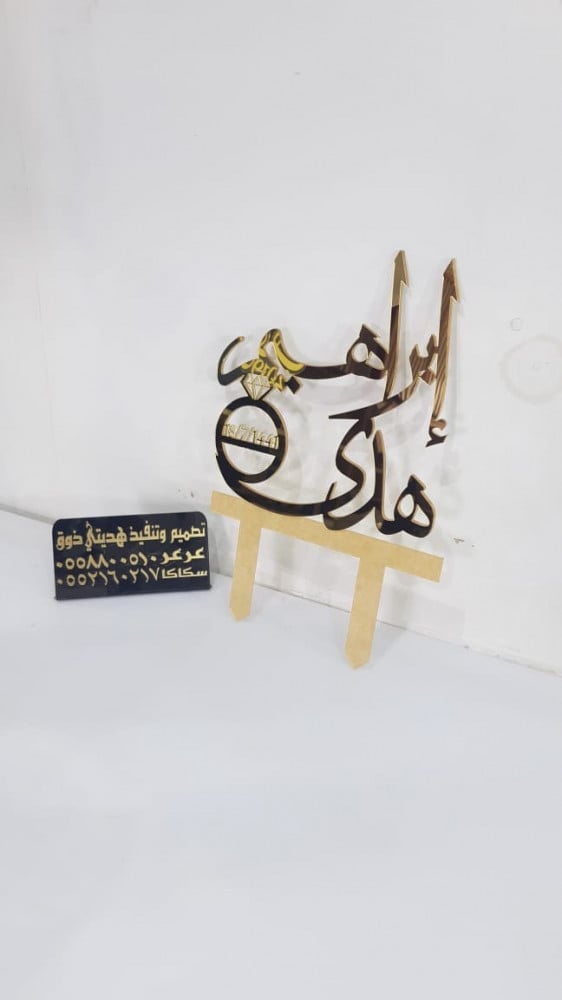 إبراهيم
هدى
18/7/1441
تصميم وتنفيذ هديتي ذوق
عرعر ٠٥٥٨٨٠٠٥١٠
سكاكا ٠٥٥٢١٦٠٢١٧